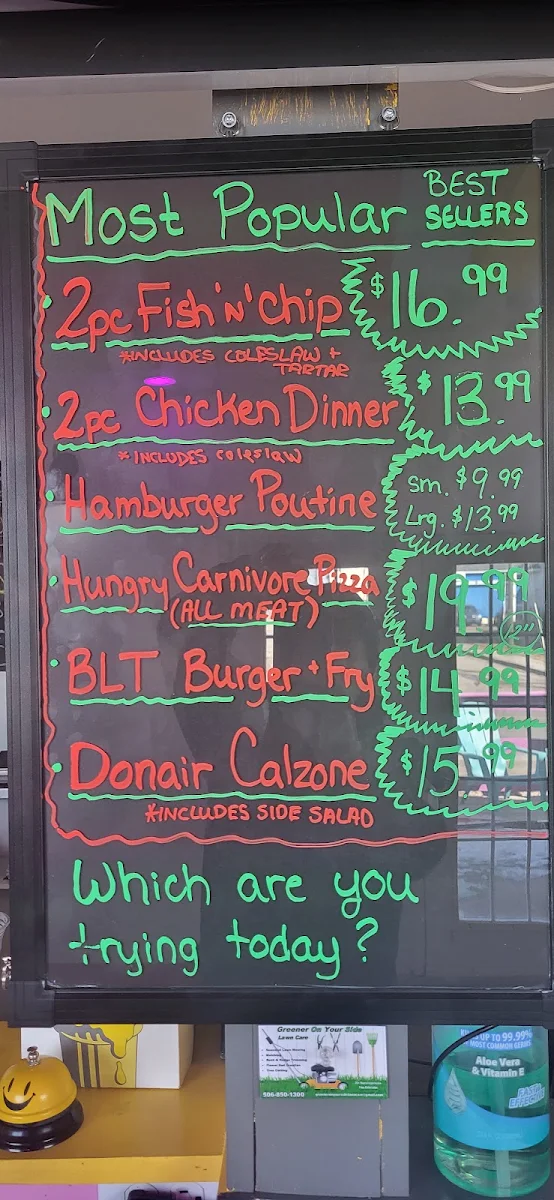 Most Popular BEST SELLERS
2pc Fish 'N' Chip $16.99
*INCLUDES COLESLAW + TARTAR
2pc Chicken Dinner $13.99
*INCLUDES coleslaw
Hamburger Poutine Sm. $9.99
Lrg. $13.99
Hungry Carnivore Pizza $19.99
(ALL MEAT) 12"
BLT Burger + Fry $14.99
Donair Calzone $15.99
*INCLUDES SIDE SALAD
Which are you
trying today?
Greener On Your Side
Lawn Care
506-850-1300
UP TO 99.99%
MOST COMMON GERMS
Aloe Vera
& Vitamin E